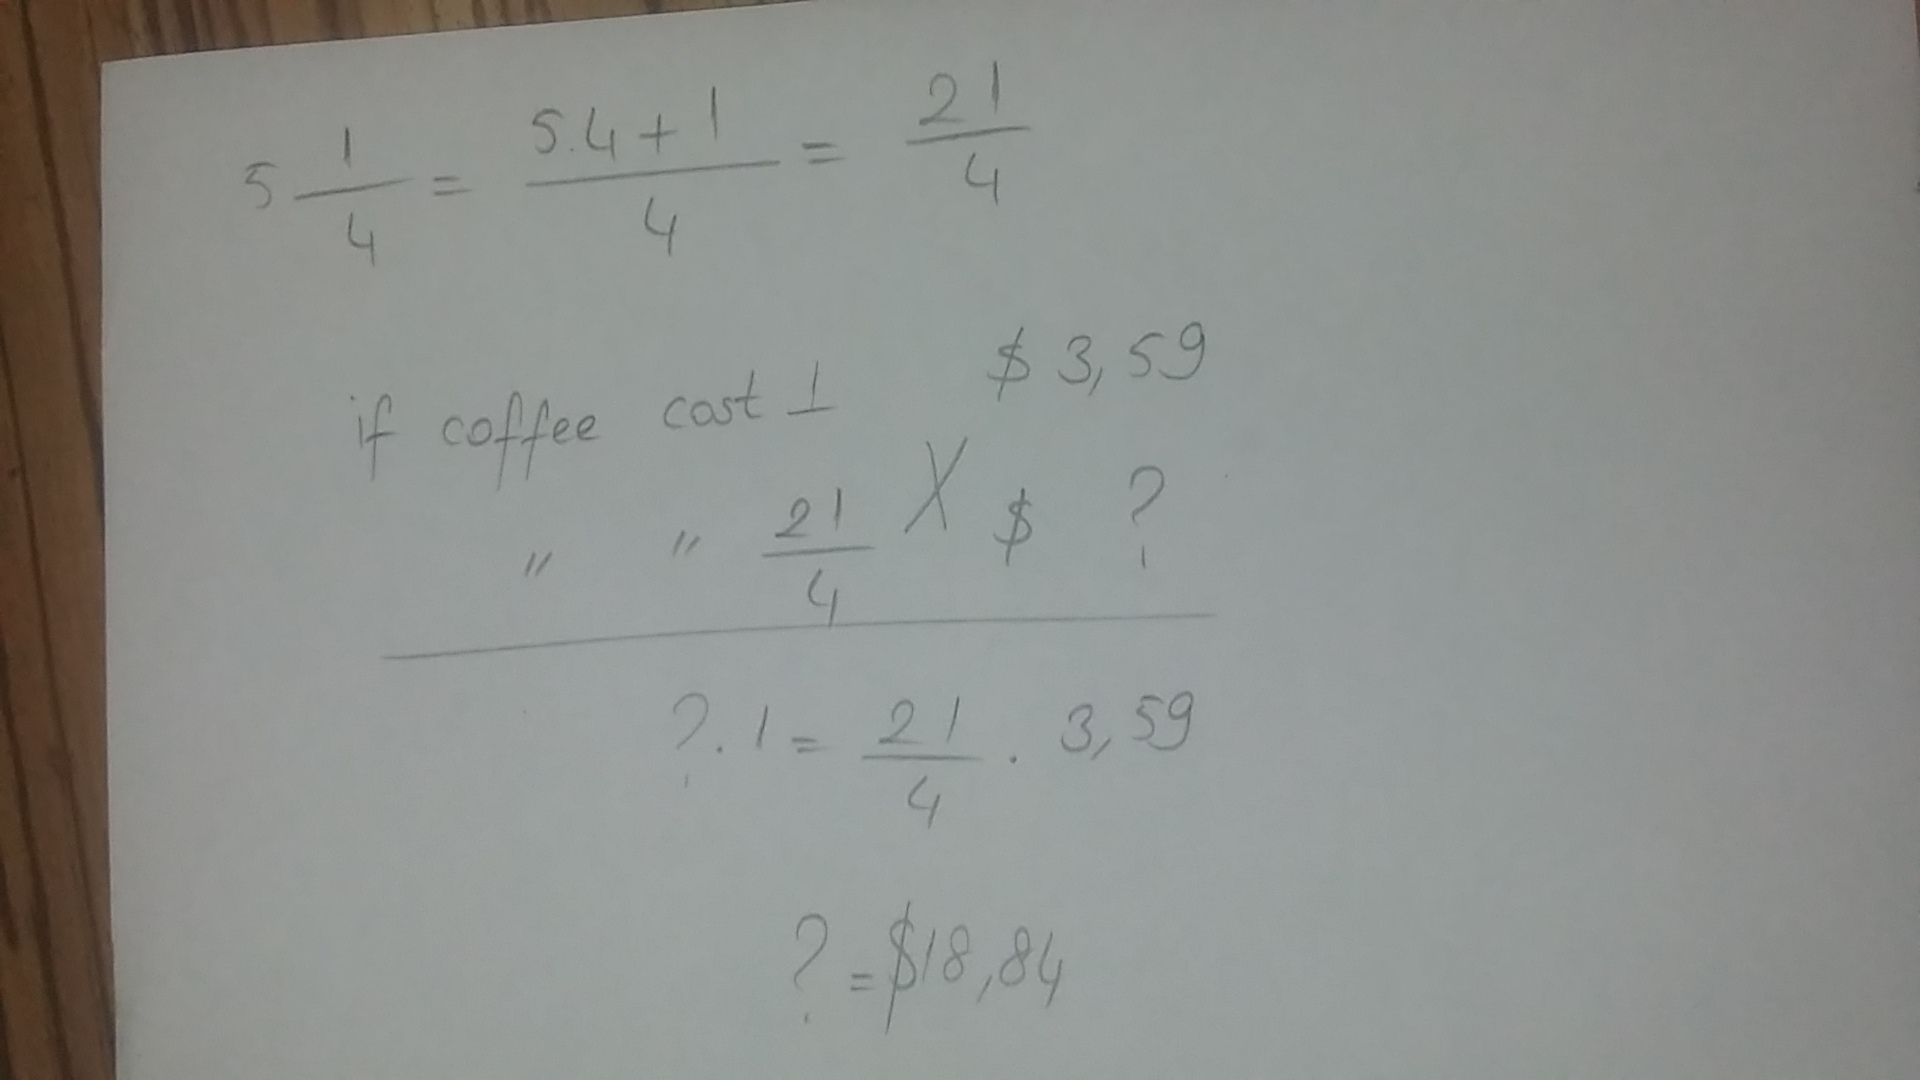 5 1/4 = 5.4+1/4 = 21/4
if coffee cost 1 $ 3,59
" " 21/4 X $ ?
?.1 = 21/4 . 3,59
? = $18,84